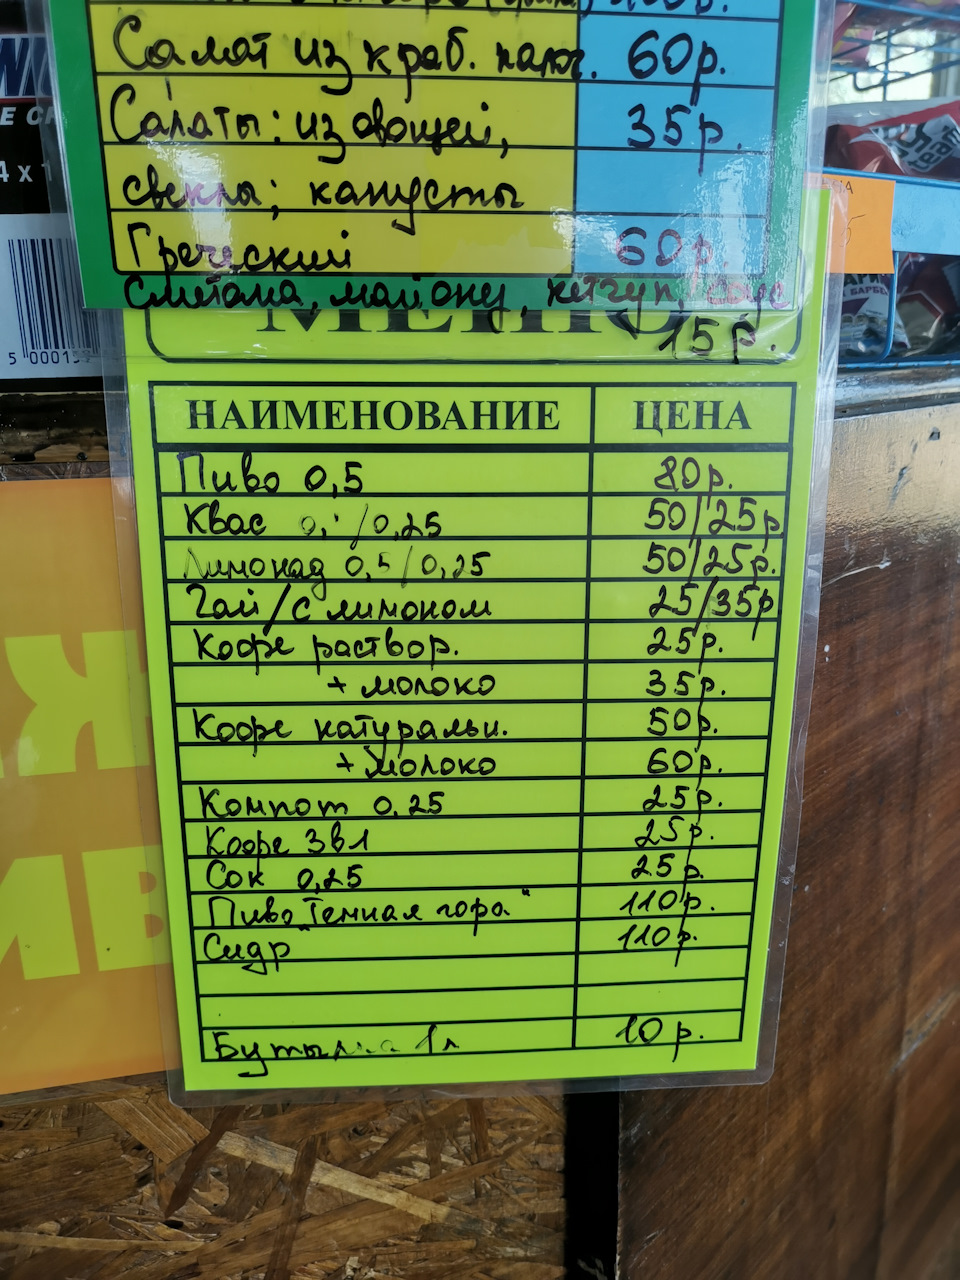 Салат из краб. палоч. 60р.
Салаты: из овощей, 35р.
свеклы; капусты
Греческий 60р.
Сметана, майонез, кетчуп, соус
15р.
МЕНЮ
5 000159
НАИМЕНОВАНИЕ ЦЕНА
Пиво 0,5 80р.
Квас /0,25 50/25р
Лимонад 0,5/0,25 50/25р.
Чай/с лимоном 25/35р
Кофе раствор. 25р.
+ молоко 35р.
Кофе натуральн. 50р.
+ молоко 60р.
Компот 0.25 25р.
Кофе 3в1 25р.
Сок 0,25 25р.
Пиво "Темная гора" 110р.
Сидр 110р.
Бутылка 1л 10р.